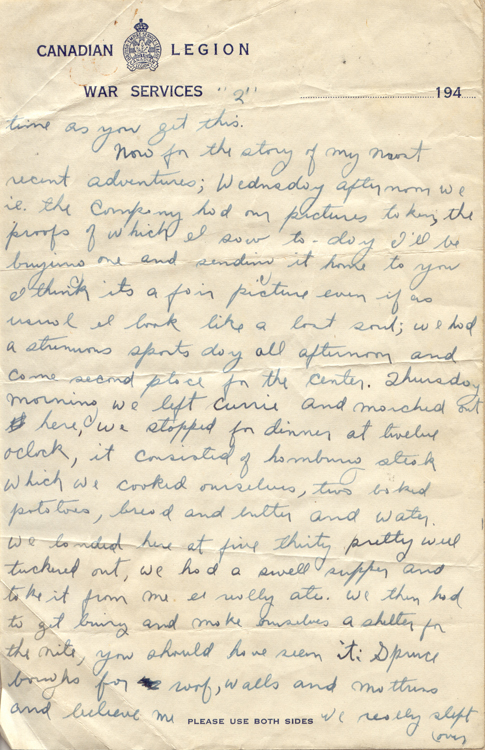 CANADIAN LEGION
WAR SERVICES "2" 194
time as you get this.
Now for the story of my most
recent adventures; Wednesday afternoon we
i.e. the Company had our pictures taken, the
proofs of which I saw to-day I'll be
buying one and sending it home to you
I think its a fair picture even if as
usual I look like a lost soul; we had
a strenuous sports day all afternoon and
came second place for the center. Thursday
morning we left Currie and marched out
here, we stopped for dinner at twelve
oclock, it consisted of hamburg steak
which we cooked ourselves, two baked
potatoes, bread and butter and water.
We landed here at five thirty pretty well
tuckered out, we had a swell supper and
take it from me I really ate. We then had
to get busy and make ourselves a shelter for
the nite, you should have seen it: Spruce
boughs for roof, walls and mattress
and believe me we really slept
PLEASE USE BOTH SIDES
(over)